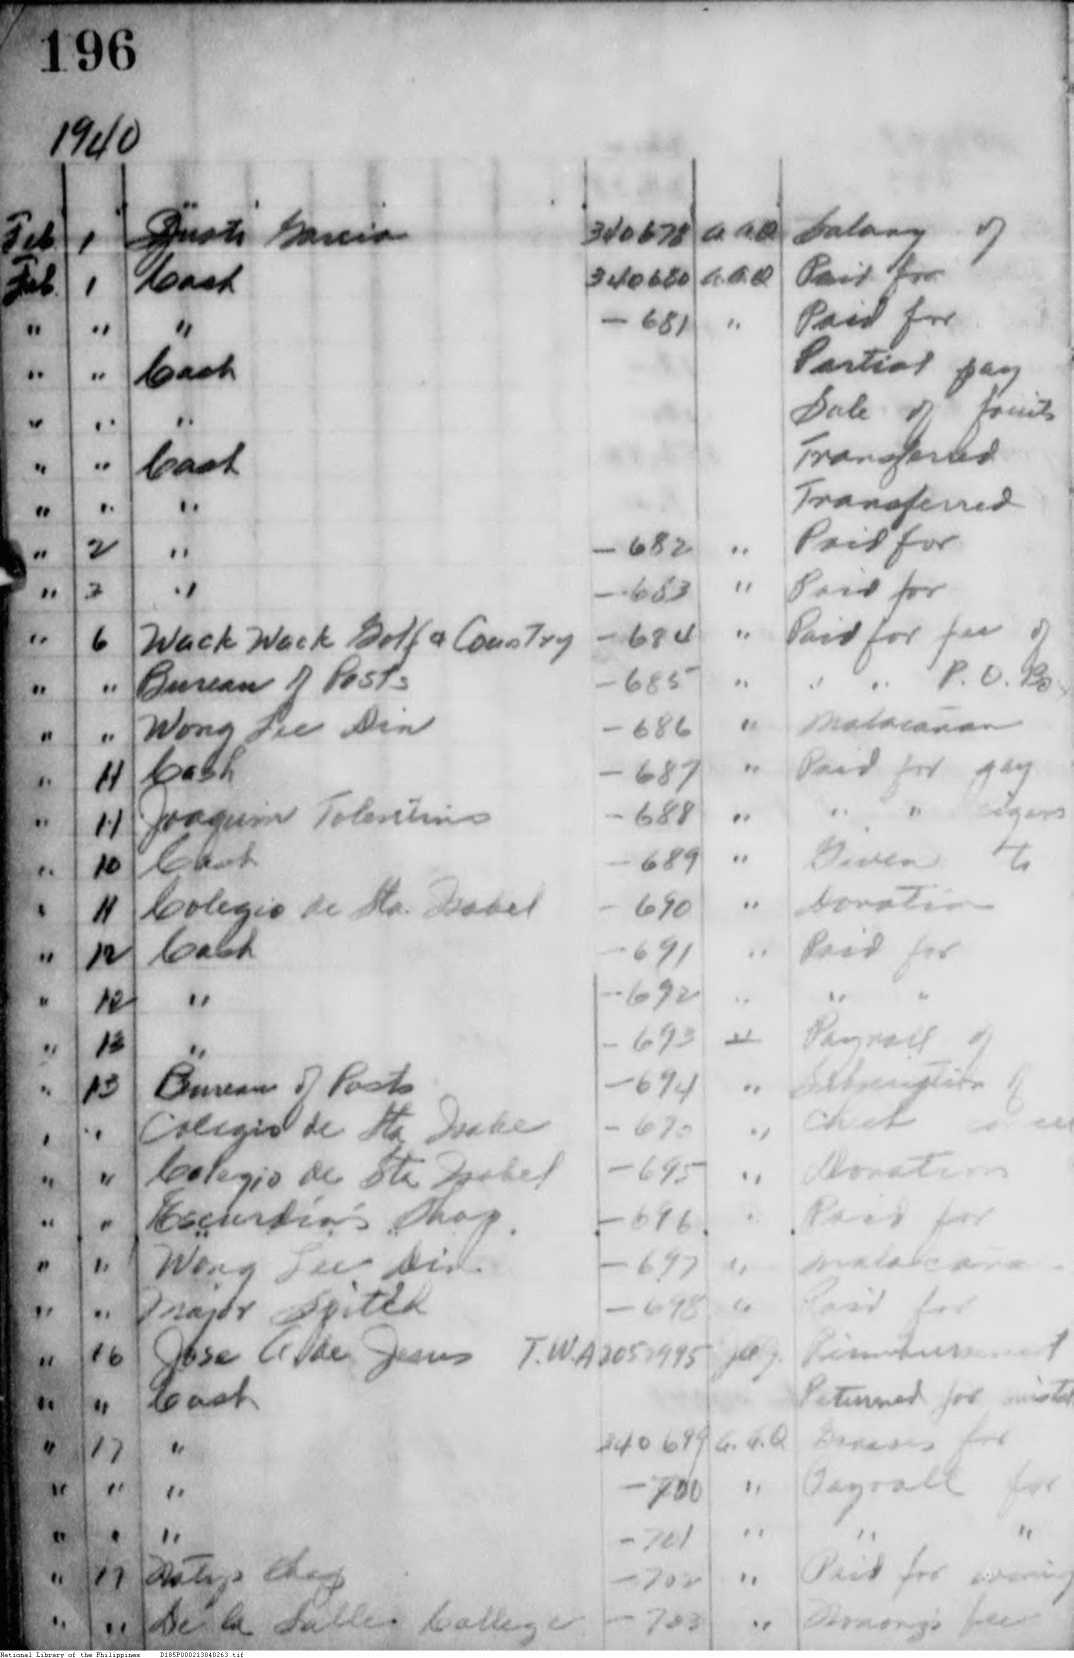 196
1940
Feb 1 Justi Garcia 340678 a.a.Q Salary of
Feb. 1 Cash 340680 a.a.Q Paid for
" " " - 681 " Paid for
" " Cash Partial pay
" " " Sale of fruits
" " Cash Transferred
" " " Transferred
" 2 " - 682 " Paid for
" 3 " - 683 " Paid for
" 6 Wack Wack Golf & Country - 684 " Paid for fee of
" " Bureau of Posts - 685 " " " P.O. Bo
" " Wong Lee Din - 686 " Malacañan
" 11 Cash - 687 " Paid for gay
" 11 Joaquin Tolentino - 688 " " " cigars
" 10 Cash - 689 " Given to
" 11 Colegio de Sta. Isabel - 690 " Donation
" 12 Cash - 691 " Paid for
" 12 " - 692 " " "
" 13 " - 693 " Payroll of
" 13 Bureau of Posts - 694 " Subscription of
" " Colegio de Sta Isabe - 690 " Check
" " Colegio de Sta Isabel - 695 " Donation
" " Escurdia's Shop. - 696 " Paid for
" " Wong Lee Din - 697 " Malacaña
" " Major - 698 " Paid for
" 16 Jose de Jesus T.W.A Reimbursement
" " Cash Returned for
" 17 " 340 699 a.a.Q for
" " " - 700 " Payroll for
" " " - 701 " " "
" 17 - 702 " Paid for
" " De la Salle College - 703 " fee
National Library of the Philippines D185P000213040263.tif